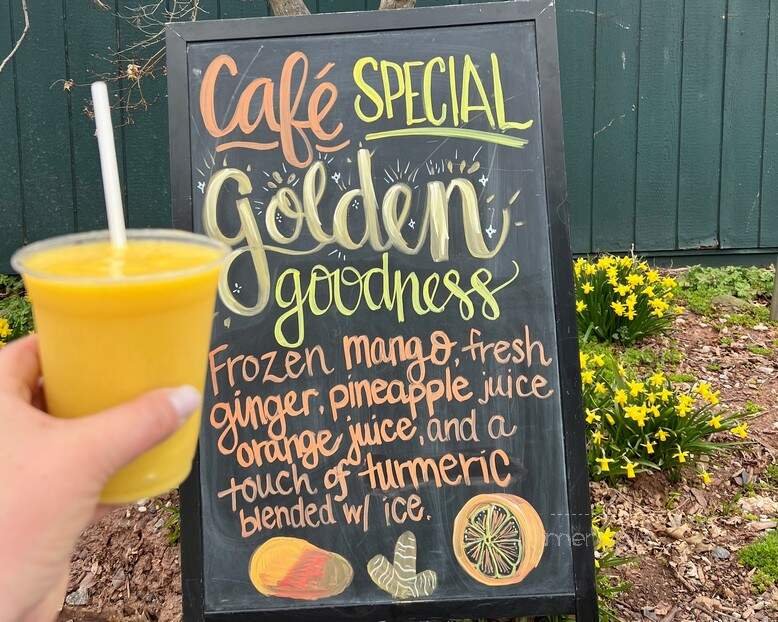 Café SPECIAL
Golden
goodness
Frozen mango, fresh
ginger, pineapple juice
orange juice, and a
touch of turmeric
blended w/ ice.